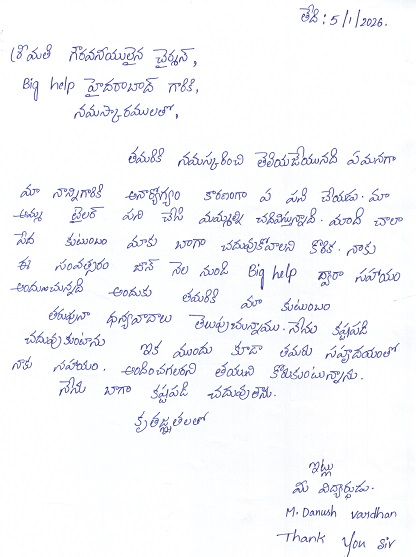 తేది : 5/1/2026.
శ్రీమతి గౌరవనీయులైన చైర్మన్,
Big help హైదరాబాద్ గారికి,
నమస్కారములతో,
తమరికి నమస్కరించి తెలియజేయునది ఏమనగా
మా నాన్నగారికి అనారోగ్యం కారణంగా ఏ పని చేయడు. మా
అమ్మ టైలర్ పని చేసి మమ్మల్ని చదివిస్తున్నాది. మాది చాలా
పేద కుటుంబం మాకు బాగా చదువుకోవాలని కోరిక. నాకు
ఈ సంవత్సరం జూన్ నెల నుండి Big help ద్వారా సహాయం
అందుచున్నది అందుకు తమరికి మా కుటుంబం
తరుపునా ధన్యవాదాలు తెలుపుచున్నాము. నేను కష్టపడి
చదువుకుంటాను ఇక ముందు కూడా తమరు సహృదయంతో
నాకు సహాయం. అందించగలరని తమరిని కోరుకుంటున్నాను.
నేను బాగా కష్టపడి చదువుతాను.
కృతజ్ఞతలతో
ఇట్లు
మీ విద్యార్థుడు.
M. Danush vardhan
Thank You Sir